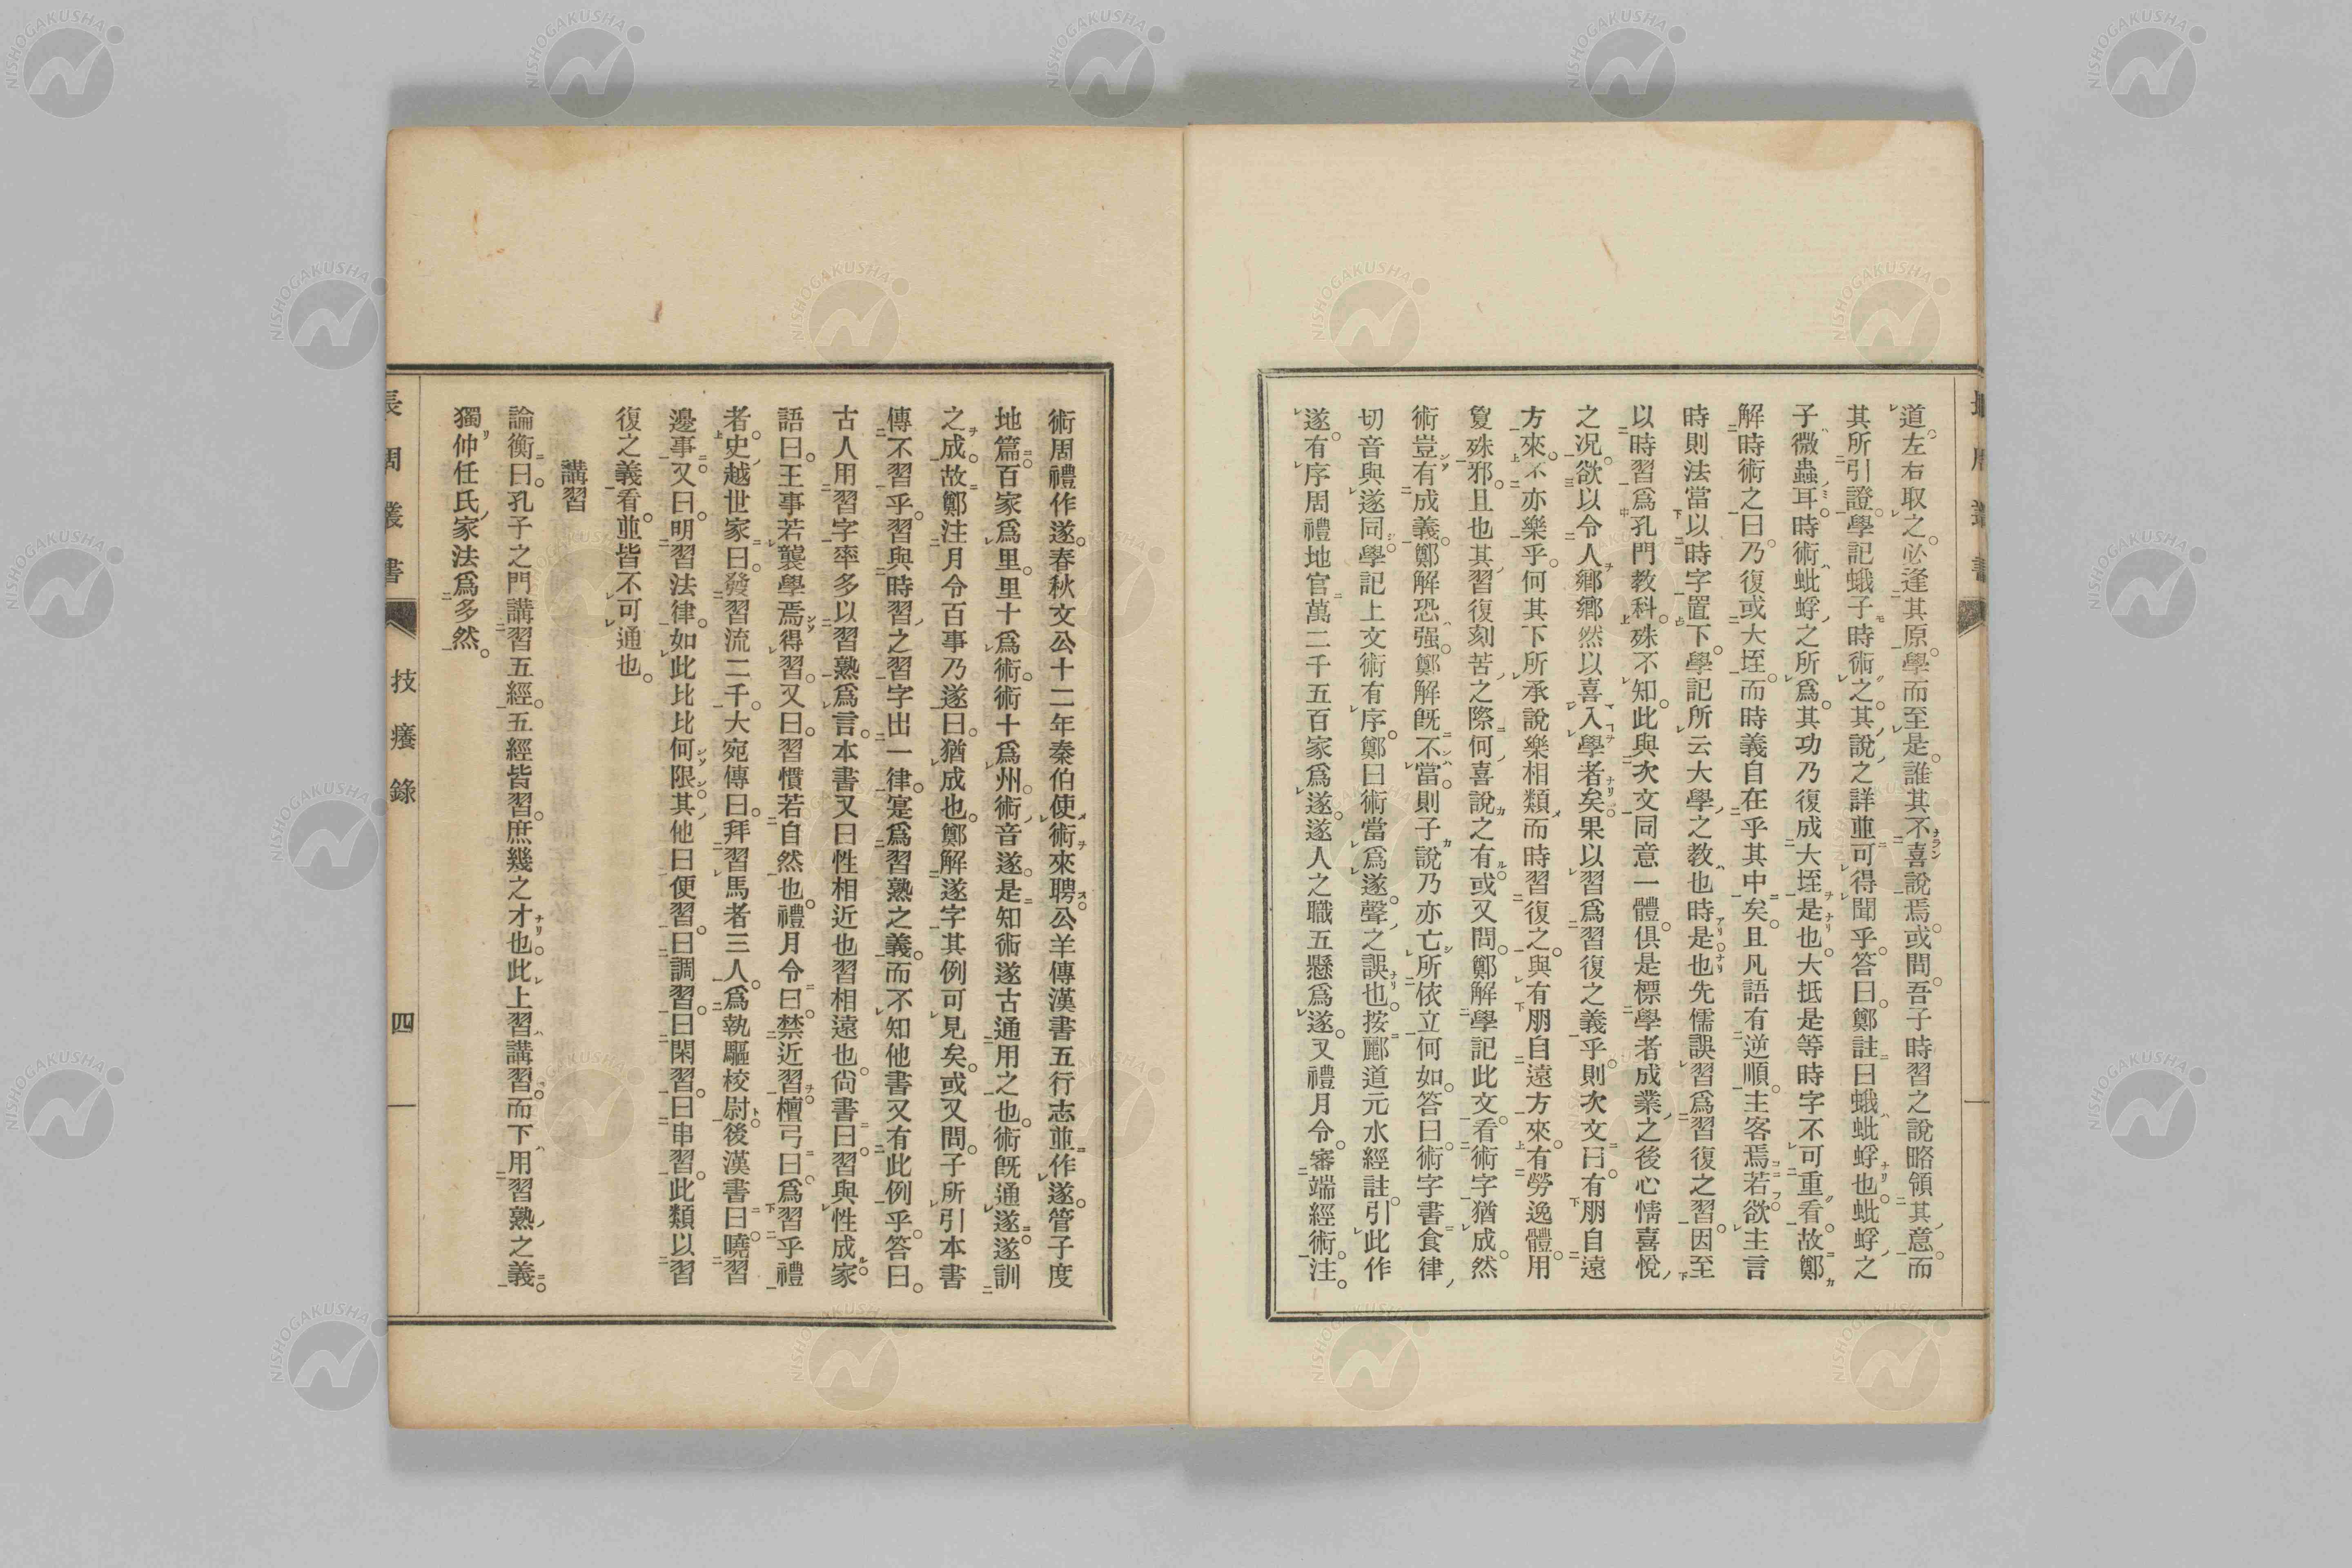 道左右取之必逢其原學而至是誰其不喜說焉或問吾子時習之說略領其意而
其所引證學記蛾子時術之其說之詳並可得聞乎答曰鄭註曰蛾蚍蜉也蚍蜉之
子微蟲耳時術蚍蜉之所爲其功乃復成大垤是也大抵是等時字不可重看故鄭
解時術之曰乃復或大垤而時義自在乎其中矣且凡語有逆順主客焉若欲主言
時則法當以時字置下學記所云大學之教也時是也先儒誤習爲習復之習因至
以時習爲孔門教科殊不知此與次文同意一體俱是標學者成業之後心情喜悅
之況欲以令人鄕鄕然以喜入學者矣果以習爲習復之義乎則次文曰有朋自遠
方來不亦樂乎何其下所承說樂相類而時習復之與有朋自遠方來有勞逸體用
敻殊邪且也其習復刻苦之際何喜說之有或又問鄭解學記此文看術字猶成然
術豈有成義鄭解恐强鄭解旣不當則子說乃亦亡所依立何如答曰術字書食律
切音與遂同學記上文術有序鄭曰術當爲遂聲之誤也按酈道元水經註引此作
遂有序周禮地官萬二千五百家爲遂遂人之職五懸爲遂又禮月令審端經術注
術周禮作遂春秋文公十二年秦伯使術來聘公羊傳漢書五行志並作遂管子度
地篇百家爲里里十爲術術十爲州術音遂是知術遂古通用之也術旣通遂遂訓
之成故鄭注月令百事乃遂曰猶成也鄭解遂字其例可見矣或又問子所引本書
傳不習乎習與時習之習字出一律寔爲習熟之義而不知他書又有此例乎答曰
古人用習字率多以習熟爲言本書又曰性相近也習相遠也尙書曰習與性成家
語曰王事若襲學焉得習又曰習慣若自然也禮月令曰禁近習檀弓曰爲習乎禮
者史越世家曰發習流二千大宛傳曰拜習馬者三人爲執驅校尉後漢書曰曉習
邊事又曰明習法律如此比比何限其他曰便習曰調習曰閑習曰串習此類以習
復之義看並皆不可通也
講習
論衡曰孔子之門講習五經五經皆習庶幾之才也此上習講習而下用習熟之義
獨仲任氏家法爲多然
長周叢書
技癢錄
四
NISHOGAKUSHA